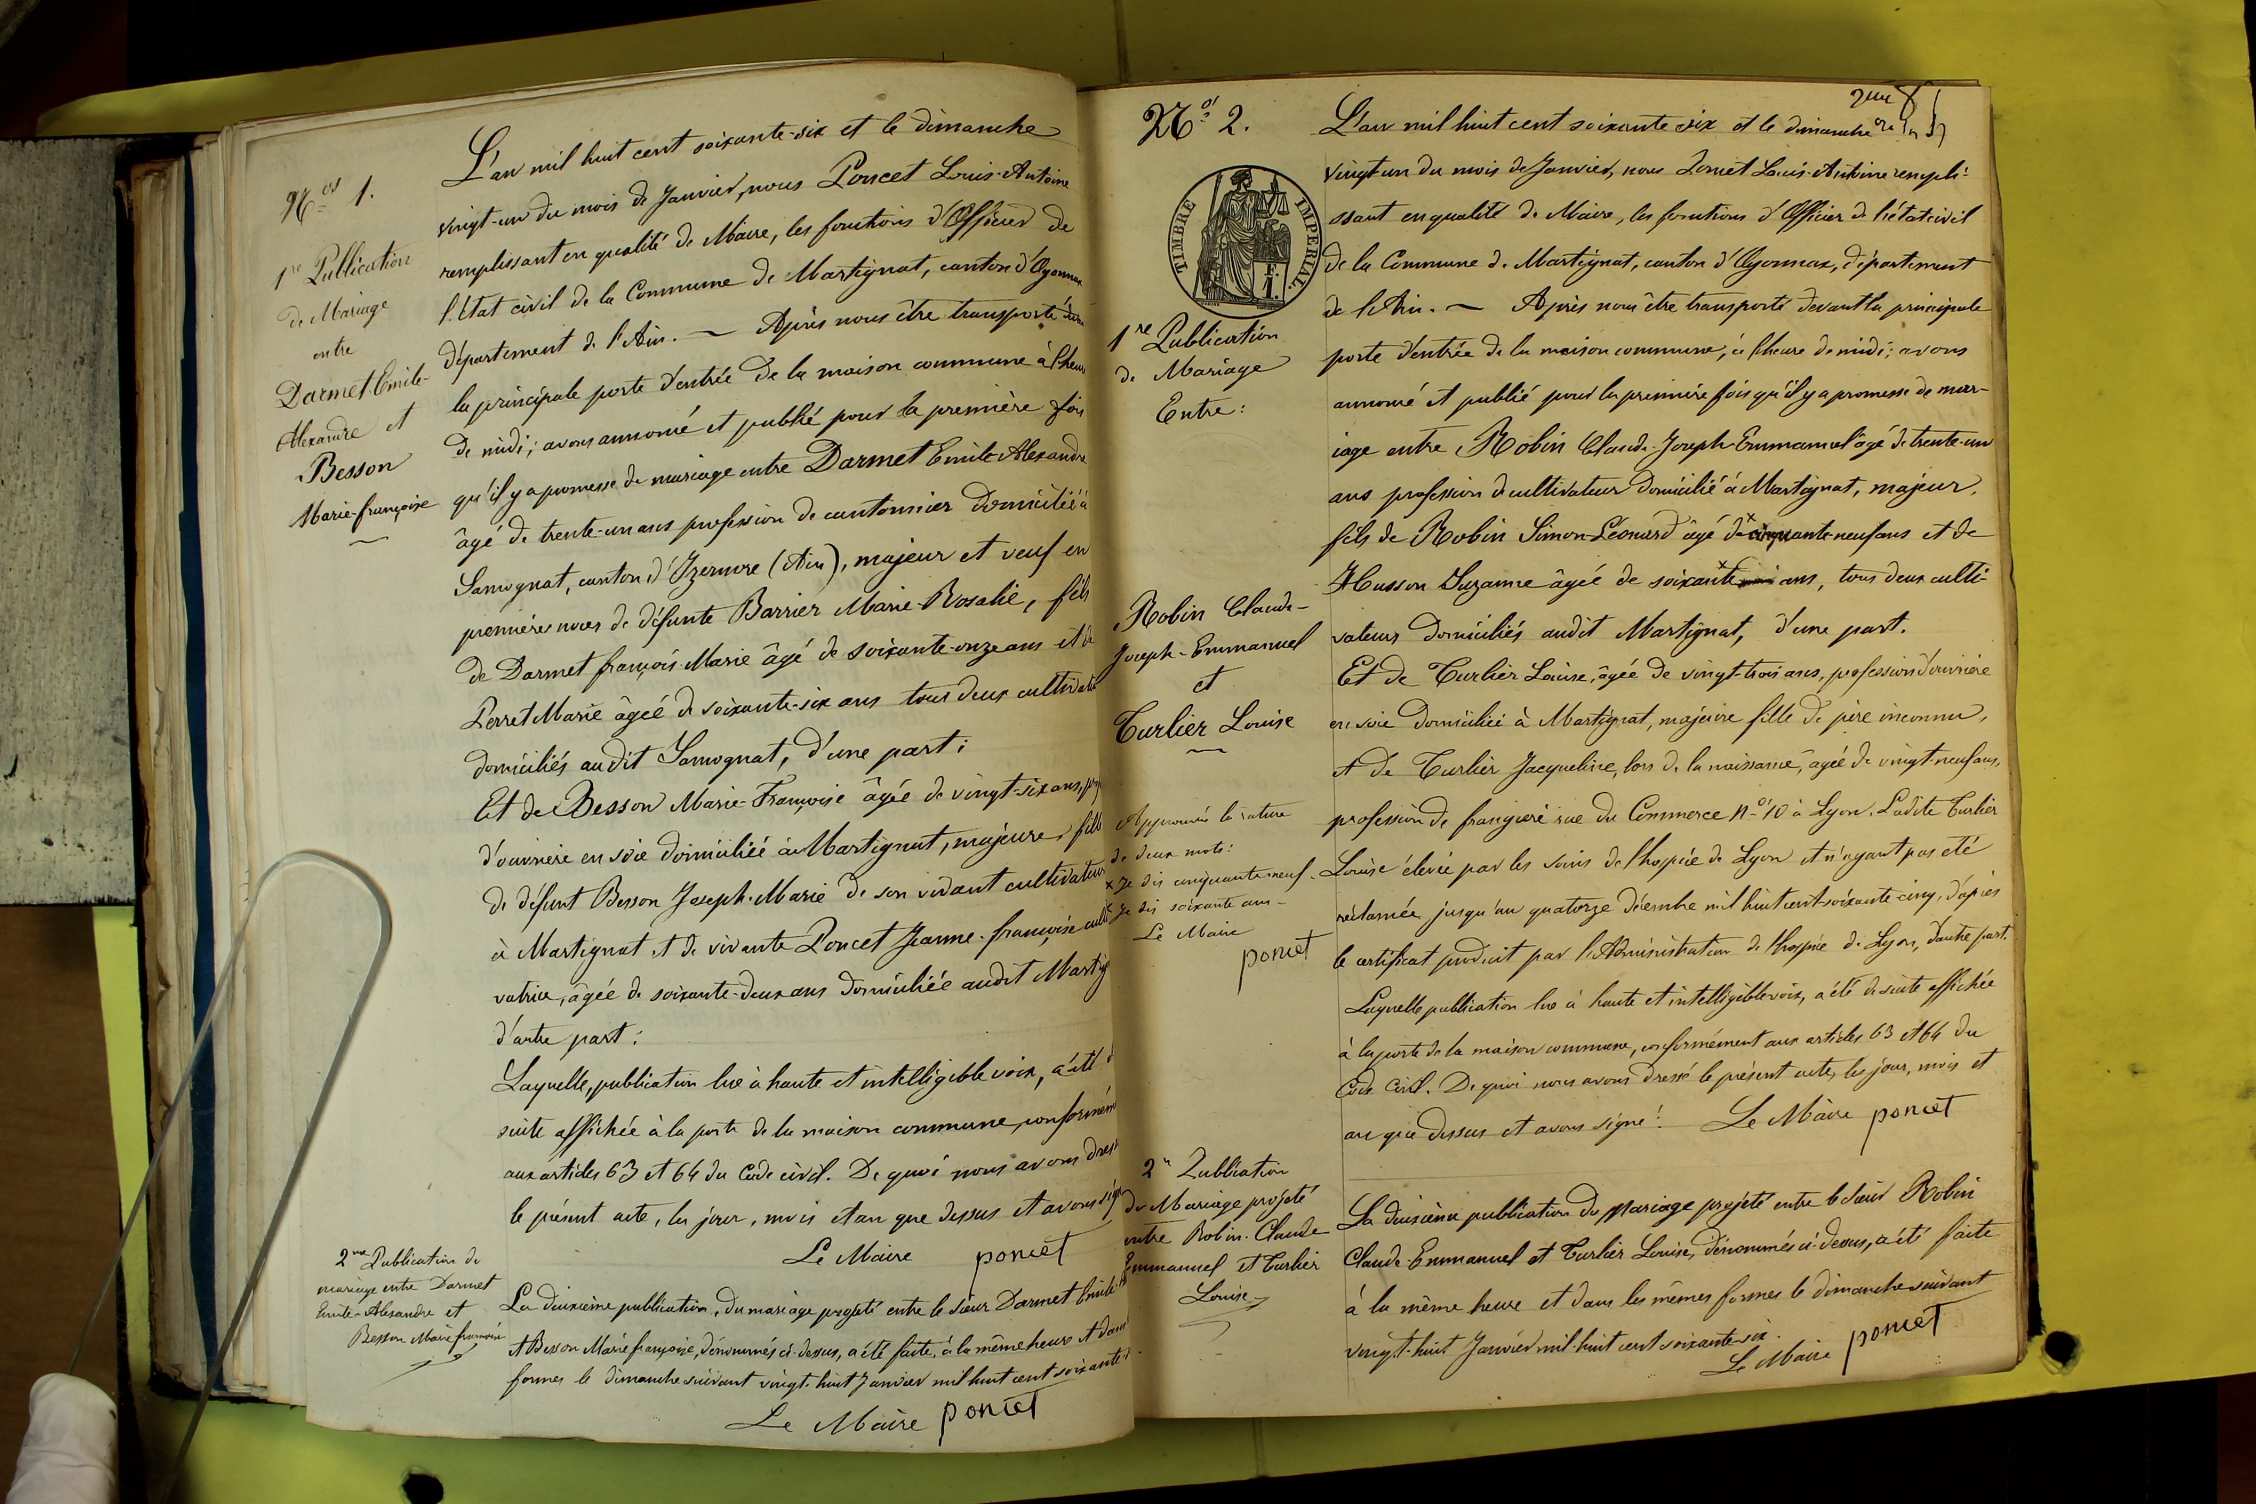 Nos 1.
1re Publication
de Mariage
entre
Darmet Emile-
Alexandre et
Besson
Marie-françoise
L'an mil huit cent soixante-six et le dimanche
vingt-un du mois de Janvier, nous Poncet Louis-Antoine
remplissant en qualité de Maire, les fonctions d'Officier de
l'Etat civil de la Commune de Martignat, canton d'Oyonnax
département de l'Ain. — Après nous être transporté
la principale porte d'entrée de la maison commune à l'heure
de midi; avons annoncé et publié pour la première fois
qu'il y a promesse de mariage entre Darmet Emile Alexandre
âgé de trente-un ans profession de cantonnier domicilié à
Samognat, canton d'Izernore (Ain), majeur et veuf en
premières noces de défunte Barrier Marie-Rosalie, fils
de Darmet françois-Marie âgé de soixante-onze ans et de
Perret Marie âgée de soixante-six ans tous deux cultivate
domiciliés audit Samognat, d'une part;
Et de Besson Marie-Françoise âgée de vingt-six ans, pro
d'ouvrière en soie domiciliée à Martignat, majeure, fille
de défunt Besson Joseph-Marie de son vivant cultivateur
à Martignat et de vivante Poncet Jeanne-françoise culti
vatrice, âgée de soixante-deux ans domiciliée audit Martig
d'autre part;
Laquelle, publication lue à haute et intelligible voix, a été d
suite affichée à la porte de la maison commune, conformém
aux articles 63 et 64 du Code civil. De quoi nous avons dres
le présent acte, les jour, mois et an que dessus et avons sig
Le Maire poncet
2me Publication de
mariage entre Darmet
Emile-Alexandre et
Besson Marie françoise
La deuxième publication, du mariage projeté entre le sieur Darmet Emile
et Besson Marie françoise, dénommés ci-dessus, a été faite, à la même heure et dans
formes le dimanche suivant vingt-huit Janvier mil huit cent soixante-
Le Maire poncet
No 2.
TIMBRE IMPERIAL.
1re Publication
de Mariage
Entre:
Robin Claude-
Joseph-Emmanuel
et
Turlier Louise
L'an mil huit cent soixante six et le dimanche
vingt-un du mois de Janvier, nous Poncet Louis-Antoine rempli-
ssant en qualité de Maire, les fonctions d'Officier de l'état civil
de la Commune de Martignat, canton d'Oyonnax, département
de l'Ain. — Après nous être transporté devant la principale
porte d'entrée de la maison commune, à l'heure de midi; avons
annoncé et publié pour la première fois qu'il y a promesse de mar-
iage entre Robin Claude-Joseph-Emmanuel âgé de trente-un
ans profession de cultivateur domicilié à Martignat, majeur,
fils de Robin Simon-Léonard âgé de x cinquante-neuf ans et de
Husson Suzanne âgée de soixante x ans, tous deux culti-
vateurs domiciliés audit Martignat, d'une part.
Et de Turlier Louise, âgée de vingt-trois ans, profession d'ouvrière
en soie domiciliée à Martignat, majeure fille de père inconnu,
et de Turlier Jacqueline, lors de la naissance, âgée de vingt-neuf ans,
profession de frangière rue du Commerce No 10 à Lyon. Ladite Turlier
Louise élevée par les soins de l'hospice de Lyon et n'ayant pas été
réclamée jusqu'au quatorze décembre mil huit cent soixante-cinq, d'après
le certificat produit par l'Administration de l'hospice de Lyon, d'autre part.
Laquelle publication lue à haute et intelligible voix, a été de suite affichée
à la porte de la maison commune, conformément aux articles 63 et 64 du
Code Civil. De quoi nous avons dressé le présent acte, les jour, mois et
an que dessus et avons signé! Le Maire poncet
Approuvés la rature
de deux mots:
x Je dis cinquante-neuf.
x Je dis soixante ans-
Le Maire
poncet
2e Publication
du Mariage projeté
entre Robin-Claude
Emmanuel et Turlier
Louise
La deuxième publication du Mariage projeté entre le Sieur Robin
Claude-Emmanuel et Turlier Louise, dénommés ci-dessus, a été faite
à la même heure et dans les mêmes formes le dimanche suivant
vingt-huit Janvier mil-huit cent soixante-six.
Le Maire poncet